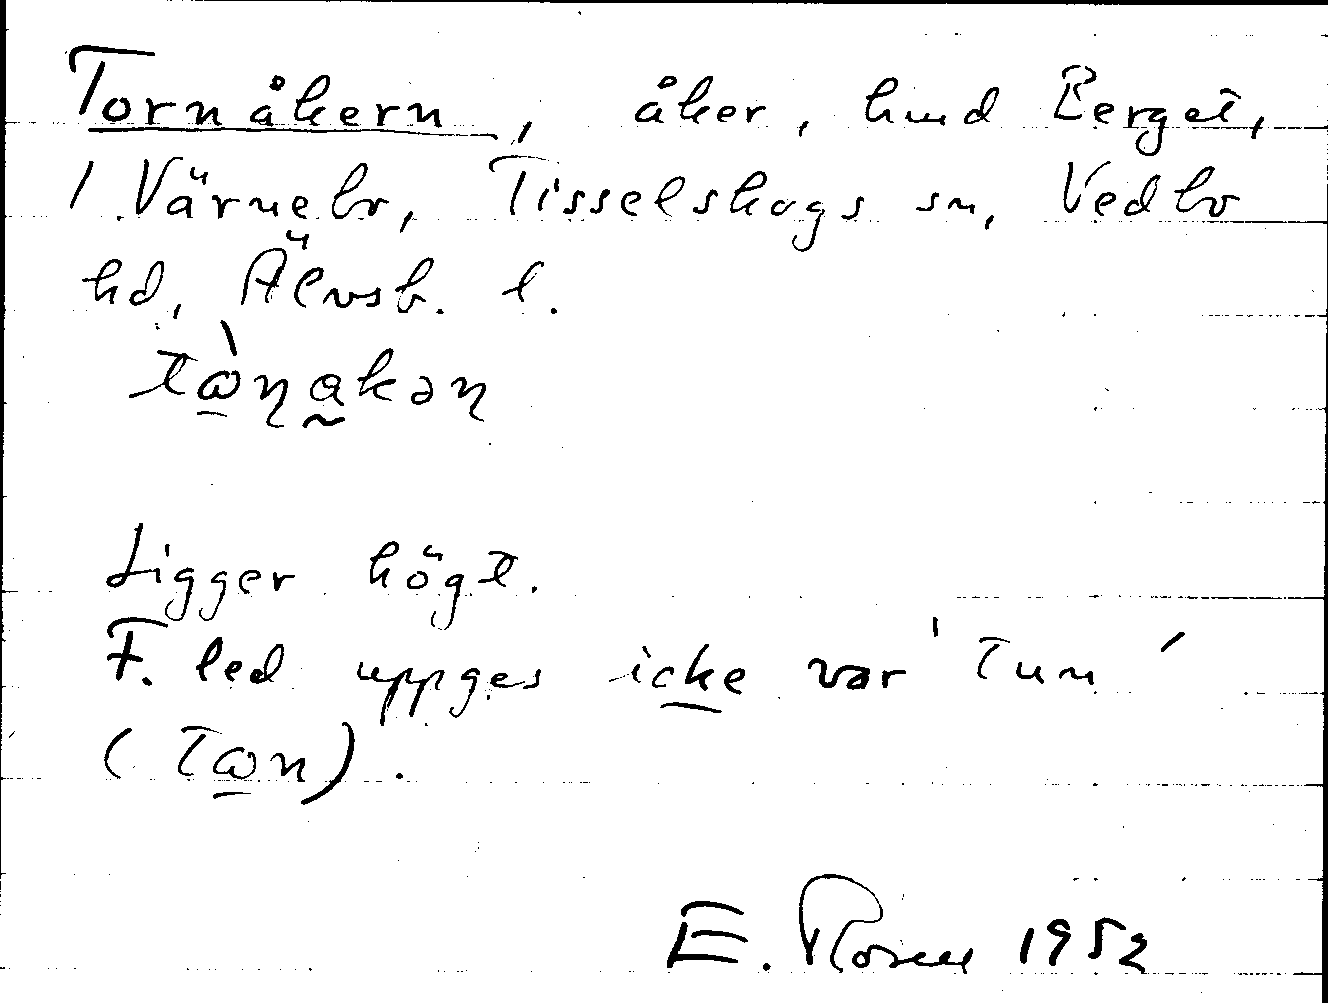 Tornåkern, åker, hmd Berget,
1 Värnebo, Tisselskogs sn, Vedbo
hd, Älvsb. l.
tὼɳakəɳ
Ligger högt.
F. led uppges icke var 'tun'
(tωn).
E. Rosen 1952